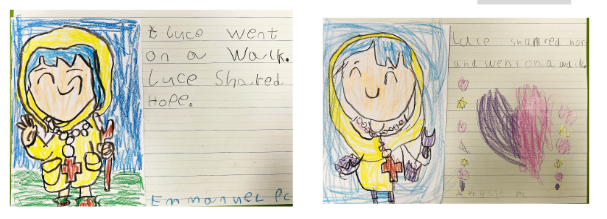 t Luce went
on a Walk.
Luce Shared
Hope.
Emmanuel Pc
Luce sharred hor
and went on a walk.